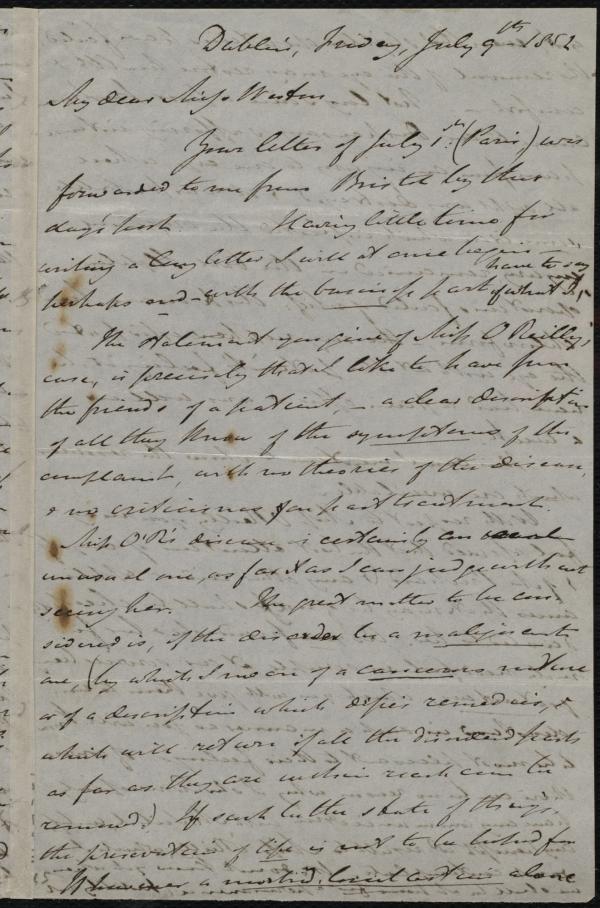 Dublin, Friday, July 9th 1852
My dear Miss Weston
Your letter of July 1st (Paris) was
forwarded to me from Bristol by this
day's post. Having little time for
writing a long letter I will at once begin
perhaps end - with the business part of what I have to say
The statement you give of Miss O'Reilly's
case, is precisely that I like to have from
the friends of a patient, - a clear description
of all they know of the symptoms of the
complaint, with no theories of the disease,
& no criticisms on past treatment.
Miss O'R's disease is certainly an
unusual one, as far as I can judge without
seeing her. The great matter to be con-
sidered is, if the disorder be a malignant
one (by which I mean of a cancerous nature
or of a description which defies remedies, &
which will return if all the diseased parts
as far as they are within reach can be
removed.) If such be the state of things,
the preservation of life is not to be hoped for
If however a morbid, local action alone